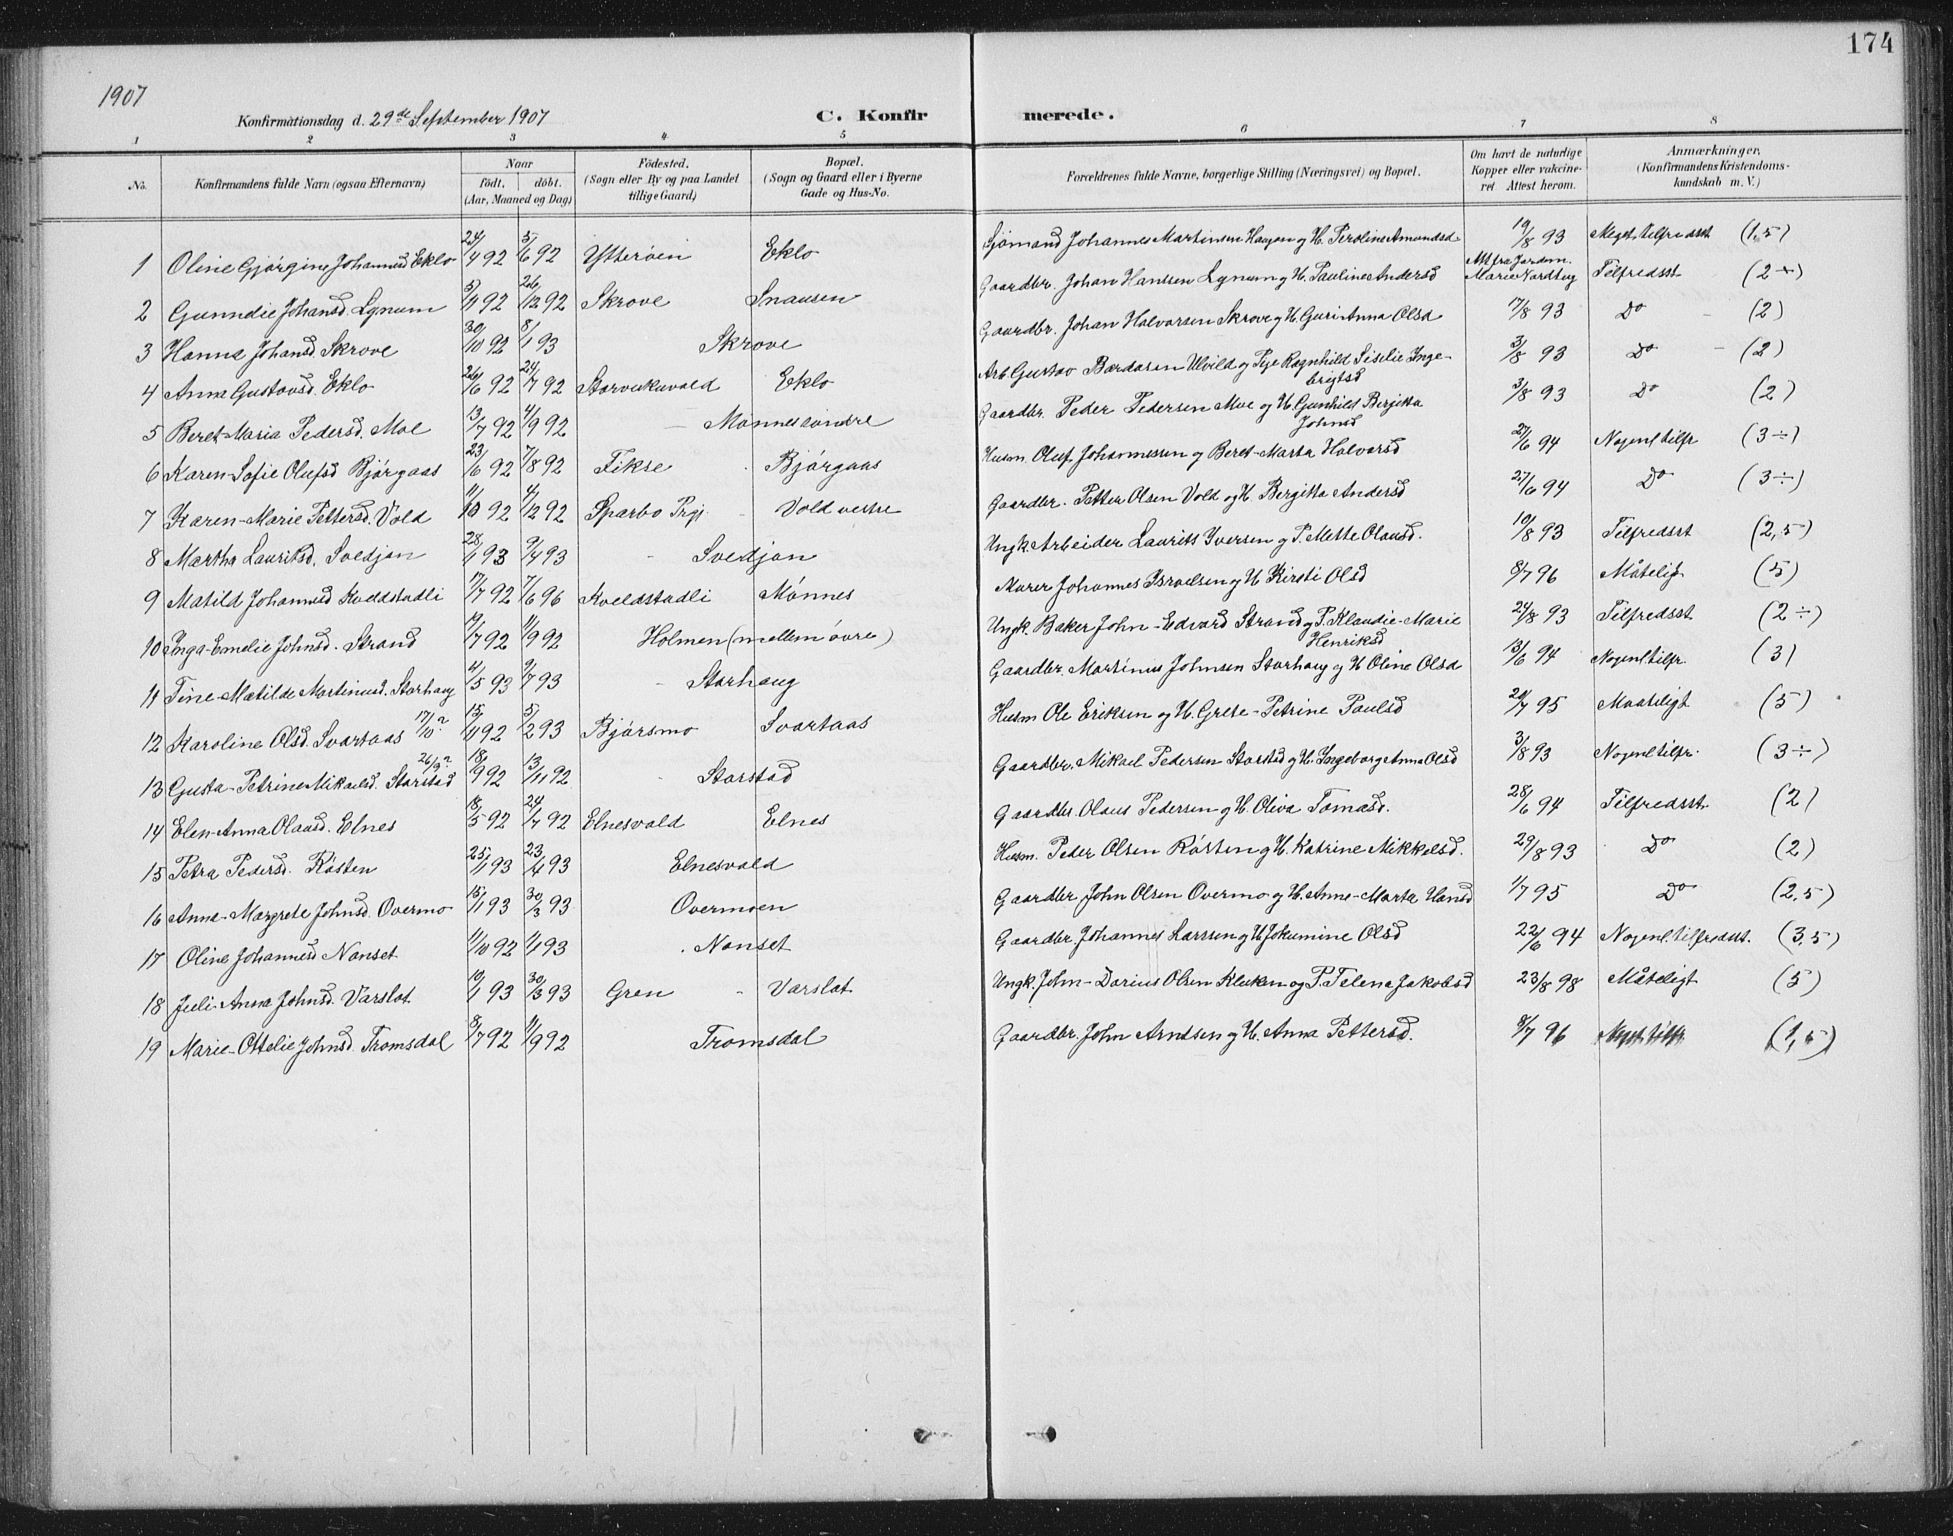 174
1907
Konfirmationsdag d. 29de September 1907
C. Konfirmerede.
1 2 3 4 5 6 7 8
No. Konfirmandens fulde Navn (ogsaa Efternavn) Naar født, døbt. (Aar, Maaned og Dag) Födested. (Sogn eller By og paa Landet tillige Gaard) Bopæl. (Sogn og Gaard eller i Byerne Gade og Hus-No. Forældrenes fulde Navne, borgerlige Stilling (Næringsvei) og Bopæl. Om havt de naturlige Kopper eller vakcineret. Attest herom. Anmærkninger, (Konfirmandens Kristendomskundskab m. V.)
1 Oline Gjørgine Johannesd Eklo 24/4 92 5/6 92 Ytterøien Eklo Sjömand Johannes Martinsen Haugan og H. Peroline Amundsd 19/8 93 Meget tilfredsst (1,5)
2 Gunndie Johansd. Lynum 5/11 92 26/12 92 Skrove Snausen Gaardbr. Johan Hansen Lynum og H. Pauline Andersd Att fra Jordm. Marie Nordtug Tilfredsst (2+)
3 Hanna Johansd Skrove 30/10 92 8/1 93 Skrove Gaardbr. Johan Halvorsen Skrove og H. Guri Anna Olsd 17/8 93 Do (2)
4 Anna Gustavsd. Eklo 26/6 92 24/7 92 Storvukuvald Eklo Arb Gustav Bardosen Ulvild og Pige Ragnhild Siselie Ingebrigtsd 3/8 93 Do (2)
5 Beret-Maria Pedersd. Moe 13/7 92 4/9 92 Mønnes söndre Gaardbr. Peder Pedersen Moe og H. Gunhild Bergitta Johnsd 3/8 93 Do (2)
6 Karen-Sofie Olufsd Bjørgaas 23/6 92 7/8 92 Fikse Bjørgaas Husm. Oluf Johannessen og Beret-Marta Halvorsd 27/6 94 Nogenl tilfr (3÷)
7 Karen-Marie Pettersd. Vold 11/10 92 4/12 92 Sparbo Prgj. Vold vestre Gaardbr. Petter Olsen Vold og H Bergitta Andersd 27/6 94 Do (3÷)
8 Martha Lauritsd. Svedjan 28/1 93 9/4 93 Svedjan Ungk. Arbeider Laurits Iversen og P. Mette Olausd. 10/8 93 Tilfredsst (2,5)
9 Matild Johannesd Kveldstadli 17/7 92 7/6 96 Kveldstadli Mønnes Murer Johannes Israelsen og H Kirsti Olsd 8/7 96 Måtelig (5)
10 Inga-Emelie Johnsd. Strand 19/7 92 11/9 92 Holmen (mellem øvre) Ungk. Baker John-Edvard Strand og P. Klaudie-Marie Henriksd 24/8 93 Tilfredsst (2÷)
11 Tine-Matilde Martinusd. Storhaug 4/5 93 9/7 93 Storhaug Gaardbr. Martinus Johnsen Storhaug og H Oline Olsd 13/6 94 Nogenl tilfr. (3)
12 Karoline Olsd. Svartaas 17/10? 15/11 92 5/2 93 Bjørsmo Svartaas Husm Ole Eriksen og H. Grete-Petrine Paulsd 20/7 95 Maateligt (5)
13 Gusta-Petrine Mikaelsd. Storstad 26/9? 18/9 92 13/11 92 Storstad Gaardbr. Mikael Pedersen Storstad og H. Ingeborg Anna Olsd 3/8 93 Nogenl tilfr. (3÷)
14 Elen-Anna Olausd. Elnes 18/5 92 24/7 92 Elnesvald Elnes Gaardbr. Olaus Pedersen og H. Oliva Tomasd. 28/6 94 Tilfredsst. (2)
15 Petra Pedersd. Røsten 25/1 93 23/4 93 Elnesvald Husm. Peder Olsen Røsten og H. Katrine Mikkelsd. 29/8 93 Do (2)
16 Anna-Margrete Johnsd. Overmo 15/1 93 30/3 93 Overmoen Gaardbr. John Olsen Overmo og H. Anne-Marta Hansd 1/7 95 Do (2,5)
17 Oline Johannesd Nonset 11/10 92 1/1 93 Nonset Gaardbr. Johannes Larssen og H Jokumine Olsd 22/6 94 Nogenl. tilfredsst. (3,5)
18 Juli-Anna Johnsd. Varslot 10/1 93 30/3 93 Gren Varslot Ungk. John-Darius Olsen Kluken og P. Telena Jakobsd 23/8 98 Måteligt (5)
19 Marie-Ottelie Johnsd. Tromsdal 8/7 92 11/9 92 Tromsdal Gaardbr. John Arntsen og H. Anna Pettersd. 8/7 96 Meget tilfr (1,5)